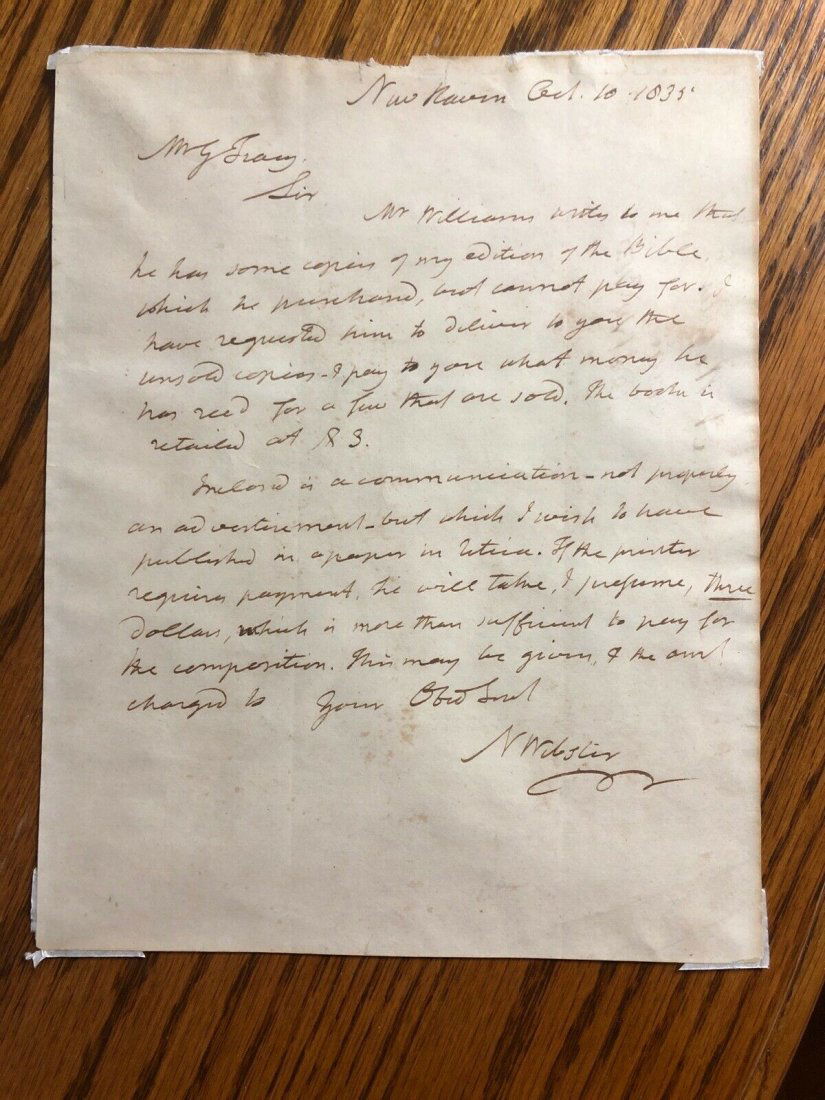 New Haven Oct. 10. 1835
Mr G Tracy.
Sir
Mr Williams writes to me that
he has some copies of my edition of the Bible,
which he purchased, but cannot pay for. I
have requested him to deliver to you the
unsold copies & pay to you what money he
has recd for a few that are sold. The book is
retailed at $3.
Inclosed is a communication - not properly
an advertisement - but which I wish to have
published in a paper in Utica. If the printer
requires payment, he will take, I presume, three
dollars, which is more than sufficient to pay for
the composition. This may be given, & the amt
charged to Your Obed Servt
N Webster